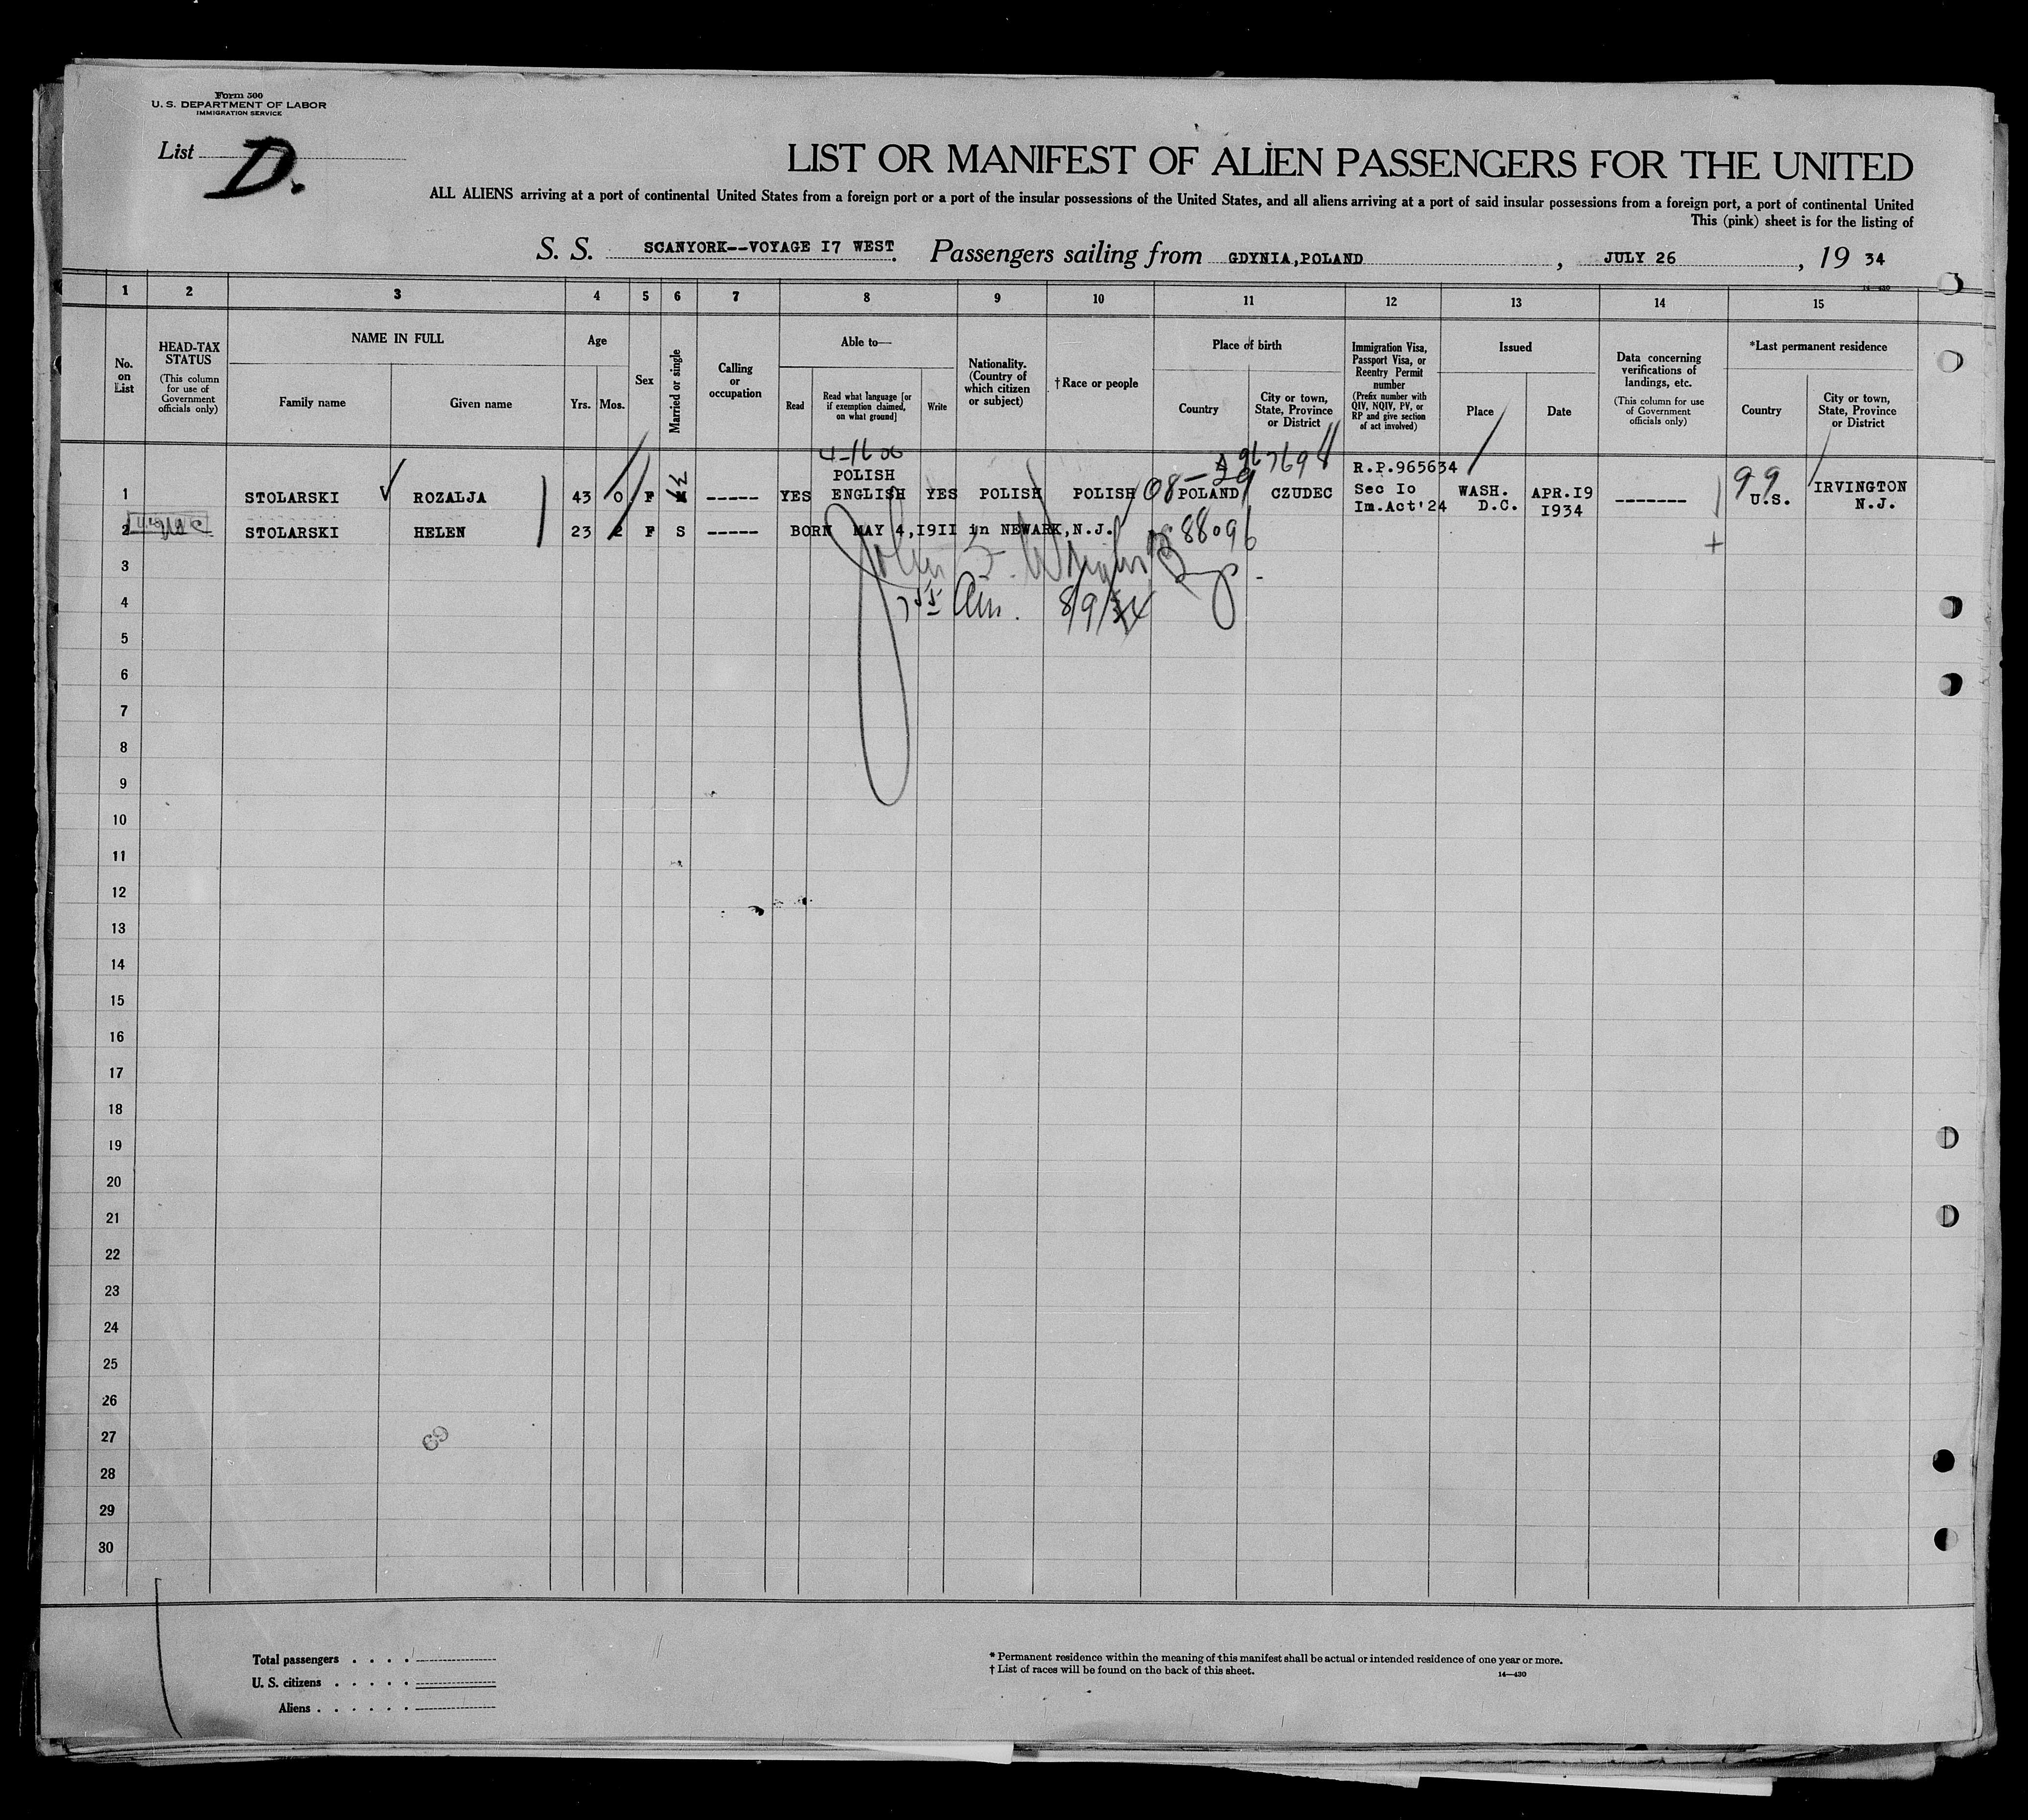 Form 500
U. S. DEPARTMENT OF LABOR
IMMIGRATION SERVICE
List D.
LIST OR MANIFEST OF ALIEN PASSENGERS FOR THE UNITED
ALL ALIENS arriving at a port of continental United States from a foreign port or a port of the insular possessions of the United States, and all aliens arriving at a port of said insular possessions from a foreign port, a port of continental United
This (pink) sheet is for the listing of
S. S. SCANYORK--VOYAGE I7 WEST. Passengers sailing from GDYNIA,POLAND, JULY 26, 19 34
14—430
1 2 3 4 5 6 7 8 9 10 11 12 13 14 15
No. on List
HEAD-TAX STATUS (This column for use of Government officials only)
NAME IN FULL
Family name
Given name
Age
Yrs.
Mos.
Sex
Married or single
Calling or occupation
Able to—
Read
Read what language [or if exemption claimed, on what ground]
Write
Nationality. (Country of which citizen or subject)
†Race or people
Place of birth
Country
City or town, State, Province or District
Immigration Visa, Passport Visa, or Reentry Permit number (Prefix number with QIV, NQIV, PV, or RP and give section of act involved)
Issued
Place
Date
Data concerning verifications of landings, etc. (This column for use of Government officials only)
*Last permanent residence
Country
City or town, State, Province or District
POLISH R.P.965634
1 STOLARSKI ROZALJA 43 0 F M ----- YES ENGLISH YES POLISH POLISH POLAND CZUDEC Sec Io WASH. APR.I9 ------- 99 U.S. IRVINGTON
Im.Act'24 D.C. I934 N.J.
2 STOLARSKI HELEN 23 2 F S ----- BORN MAY 4,I9II in NEWARK,N.J. 88096
3
4 8/9/34
5
6
7
8
9
10
11
12
13
14
15
16
17
18
19
20
21
22
23
24
25
26
27
28
29
30
Total passengers . . . .
U. S. citizens . . . . .
Aliens . . . . . .
* Permanent residence within the meaning of this manifest shall be actual or intended residence of one year or more.
† List of races will be found on the back of this sheet.
14—430